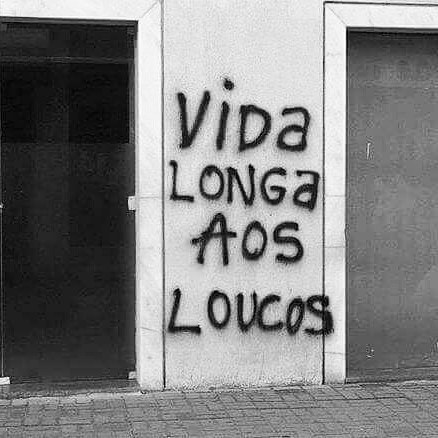 ViDa
LONGa
AOS
LOUCOS